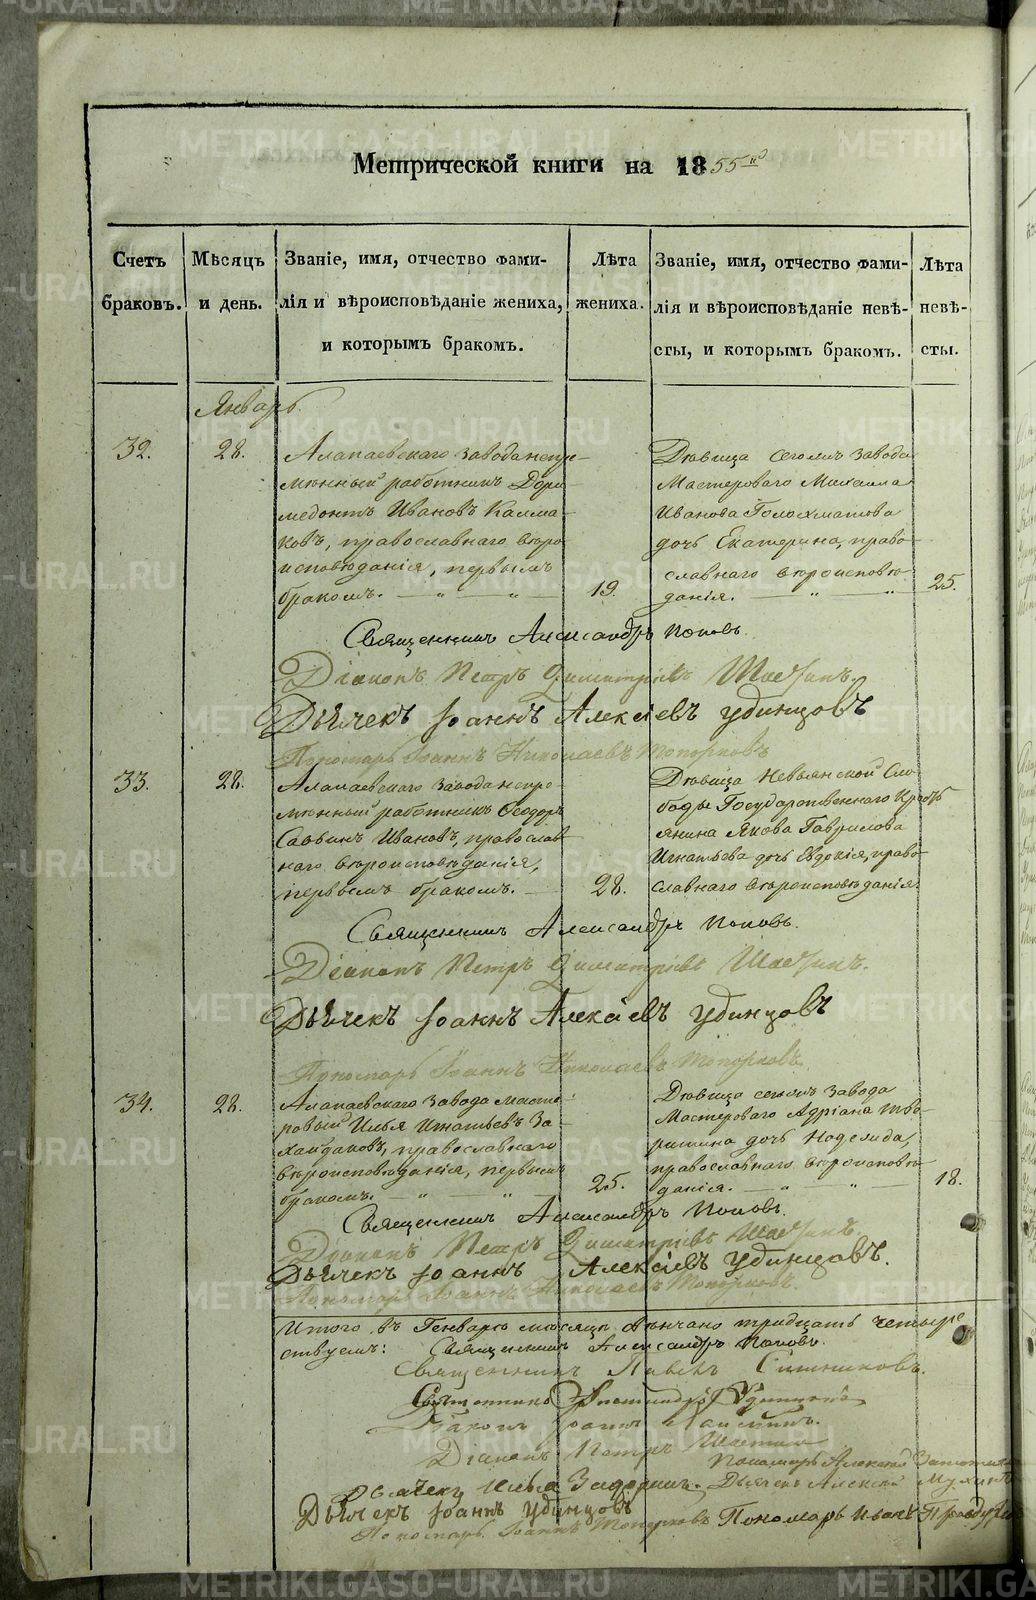 METRIKI.GASO-URAL.RU
Метрической книги на 1855 годъ
Счетъ браковъ.
Мѣсяцъ и день.
Званіе, имя, отчество фами-
лія и вѣроисповѣданіе жениха,
и которымъ бракомъ.
Лѣта жениха.
Званіе, имя, отчество фами-
лія и вѣроисповѣданіе невѣ-
сты, и которымъ бракомъ.
Лѣта невѣ-
сты.
Январь.
32.
28.
Алапаевскаго завода непре-
мѣнный работникъ Дори-
медонтъ Ивановъ Калма-
ковъ, православнаго вѣро-
исповѣданія, первымъ
бракомъ.
19.
Дѣвица сегожъ завода
Мастероваго Михаила
Иванова Голохматова
дочь Екатерина, право-
славнаго вѣроисповѣ-
данія.
25.
Священникъ Александръ Поповъ.
Діаконъ Петръ Димитріевъ
Дьячекъ Іоаннъ Алексіевъ Удинцовъ
Пономарь Іоаннъ Николаевъ Топорковъ
33.
28.
Алапаевскаго завода непре-
мѣнный работникъ Ѳеодоръ
Саввинъ Ивановъ, православ-
наго вѣроисповѣданія,
первымъ бракомъ.
28.
Дѣвица Невьянской Сло-
боды Государственнаго Кресть-
янина Якова Гаврилова
Игнатьева дочь Евдокія, право-
славнаго вѣроисповѣданія.
Священникъ Александръ Поповъ.
Діаконъ Петръ Димитріевъ
Дьячекъ Іоаннъ Алексіевъ Удинцовъ
Пономарь Іоаннъ Николаевъ Топорковъ.
34.
28.
Алапаевскаго завода масте-
ровый Илья Игнатьевъ За-
православнаго
вѣроисповѣданія, первымъ
бракомъ.
25.
Дѣвица сегожъ завода
Мастероваго Адріана Тво-
ритина дочь
православнаго вѣроисповѣ-
данія.
18.
Священникъ Александръ Поповъ.
Діаконъ Петръ Димитріевъ
Дьячекъ Іоаннъ Алексіевъ Удинцовъ.
Пономарь Іоаннъ Николаевъ Топорковъ.
Итого въ Генварѣ мѣсяцѣ вѣнчано тридцать четыре
Священникъ Александръ Поповъ.
Священникъ
Священникъ
Діаконъ Іоаннъ
Діаконъ Петръ
Пономарь Алексѣй
Дьячекъ Илья
Дьячекъ Алексій
Дьячекъ Іоаннъ Удинцовъ
Пономарь Іоаннъ Топорковъ
Пономарь Иванъ